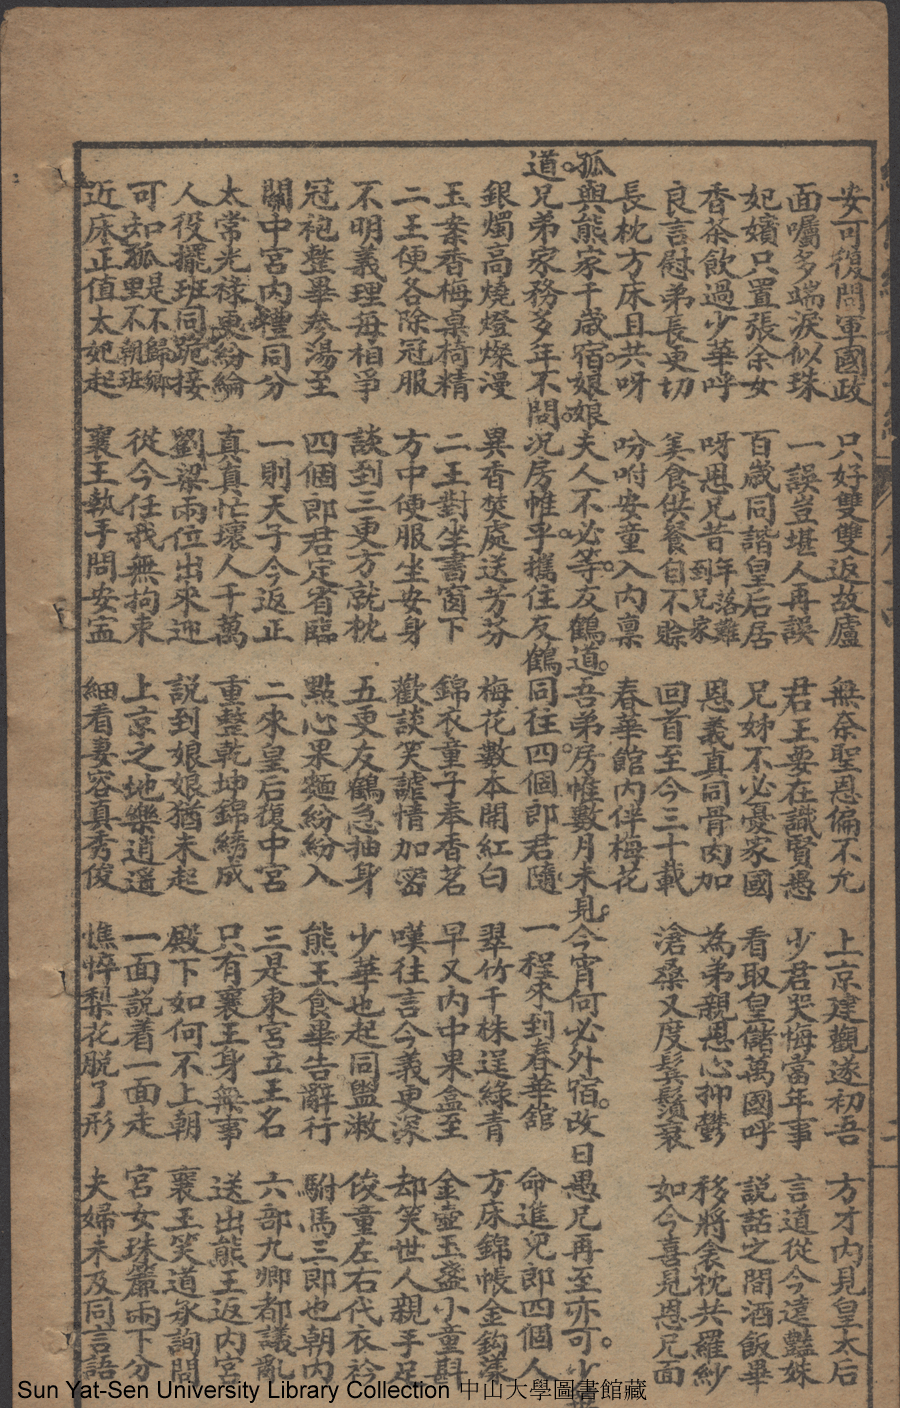 安可復問軍國政 只好雙雙返故廬 無奈聖恩偏不允 上京建觀遂初吾 方才內見皇太后
面囑多端淚似珠 一誤豈堪人再誤 君王要在識賢愚 少君哭悔當年事 言道從今遠豔姝
妃嬪只置張余女 百歲同諧皇后居 兄姊不必憂家國 看取皇儲萬國呼 說話之間酒飯畢
香茶飲過少華呼 呀恩兄昔年落難到兄家 恩義真同骨肉加 為弟親恩心抑鬱 移將衾枕共羅紗
良言慰弟長更切 美食供餐自不賒 回首至今三十載 滄桑又度鬢鬚衰 如今喜見恩兄面
長枕方床且共呀 吩咐安童入內稟 春華館內伴梅花
孤與熊家千歲宿。娘娘夫人不必等。友鶴道。吾弟房帷數月未見。今宵何必外宿。改日愚兄再至亦可。少華
道。兄弟家務多年不問。况房帷乎。攜住友鶴同往。四個郎君隨 一程來到春華舘 命進兒郎四個人
銀燭高燒燈燦漫 異香焚處送芳芬 梅花數本開紅白 翠竹千株逞綠青 方床錦帳金鈎漾
玉案香梅桌椅精 二王對坐書窗下 錦衣童子奉香茗 早又內中果盒至 金壺玉盞小童斟
二王便各除冠服 方中便服坐安身 歡談笑謔情加密 嘆往言今義更深 却笑世人親手足
不明義理每相爭 談到三更方就枕 五更友鶴急抽身 少華也起同盥漱 俊童左右代衣衿
冠袍整畢參湯至 四個郎君定省臨 點心果麵紛紛入 熊王食畢告辭行 駙馬三郎也朝內
關中宮內禮同分 一則天子今返正 二來皇后復中宮 三是東宮立王名 六部九卿都議亂
太常光祿更紛綸 真真忙壞人千萬 重整乾坤錦綉成 只有襄王身無事 送出熊王返內宮
人役擺班同跪接 劉梁兩位出來迎 說到娘娘猶未起 殿下如何不上朝 襄王笑道詢問
可知孤是不歸鄉里不朝班 從今任我無拘束 上京之地樂逍遥 一面說着一面走 宮女珠簾兩下分
近床正值太妃起 襄王執手問安寍 細看妻容真秀俊 憔悴梨花脱了形 夫婦未及同言語
Sun Yat-Sen University Library Collection 中山大學圖書館藏